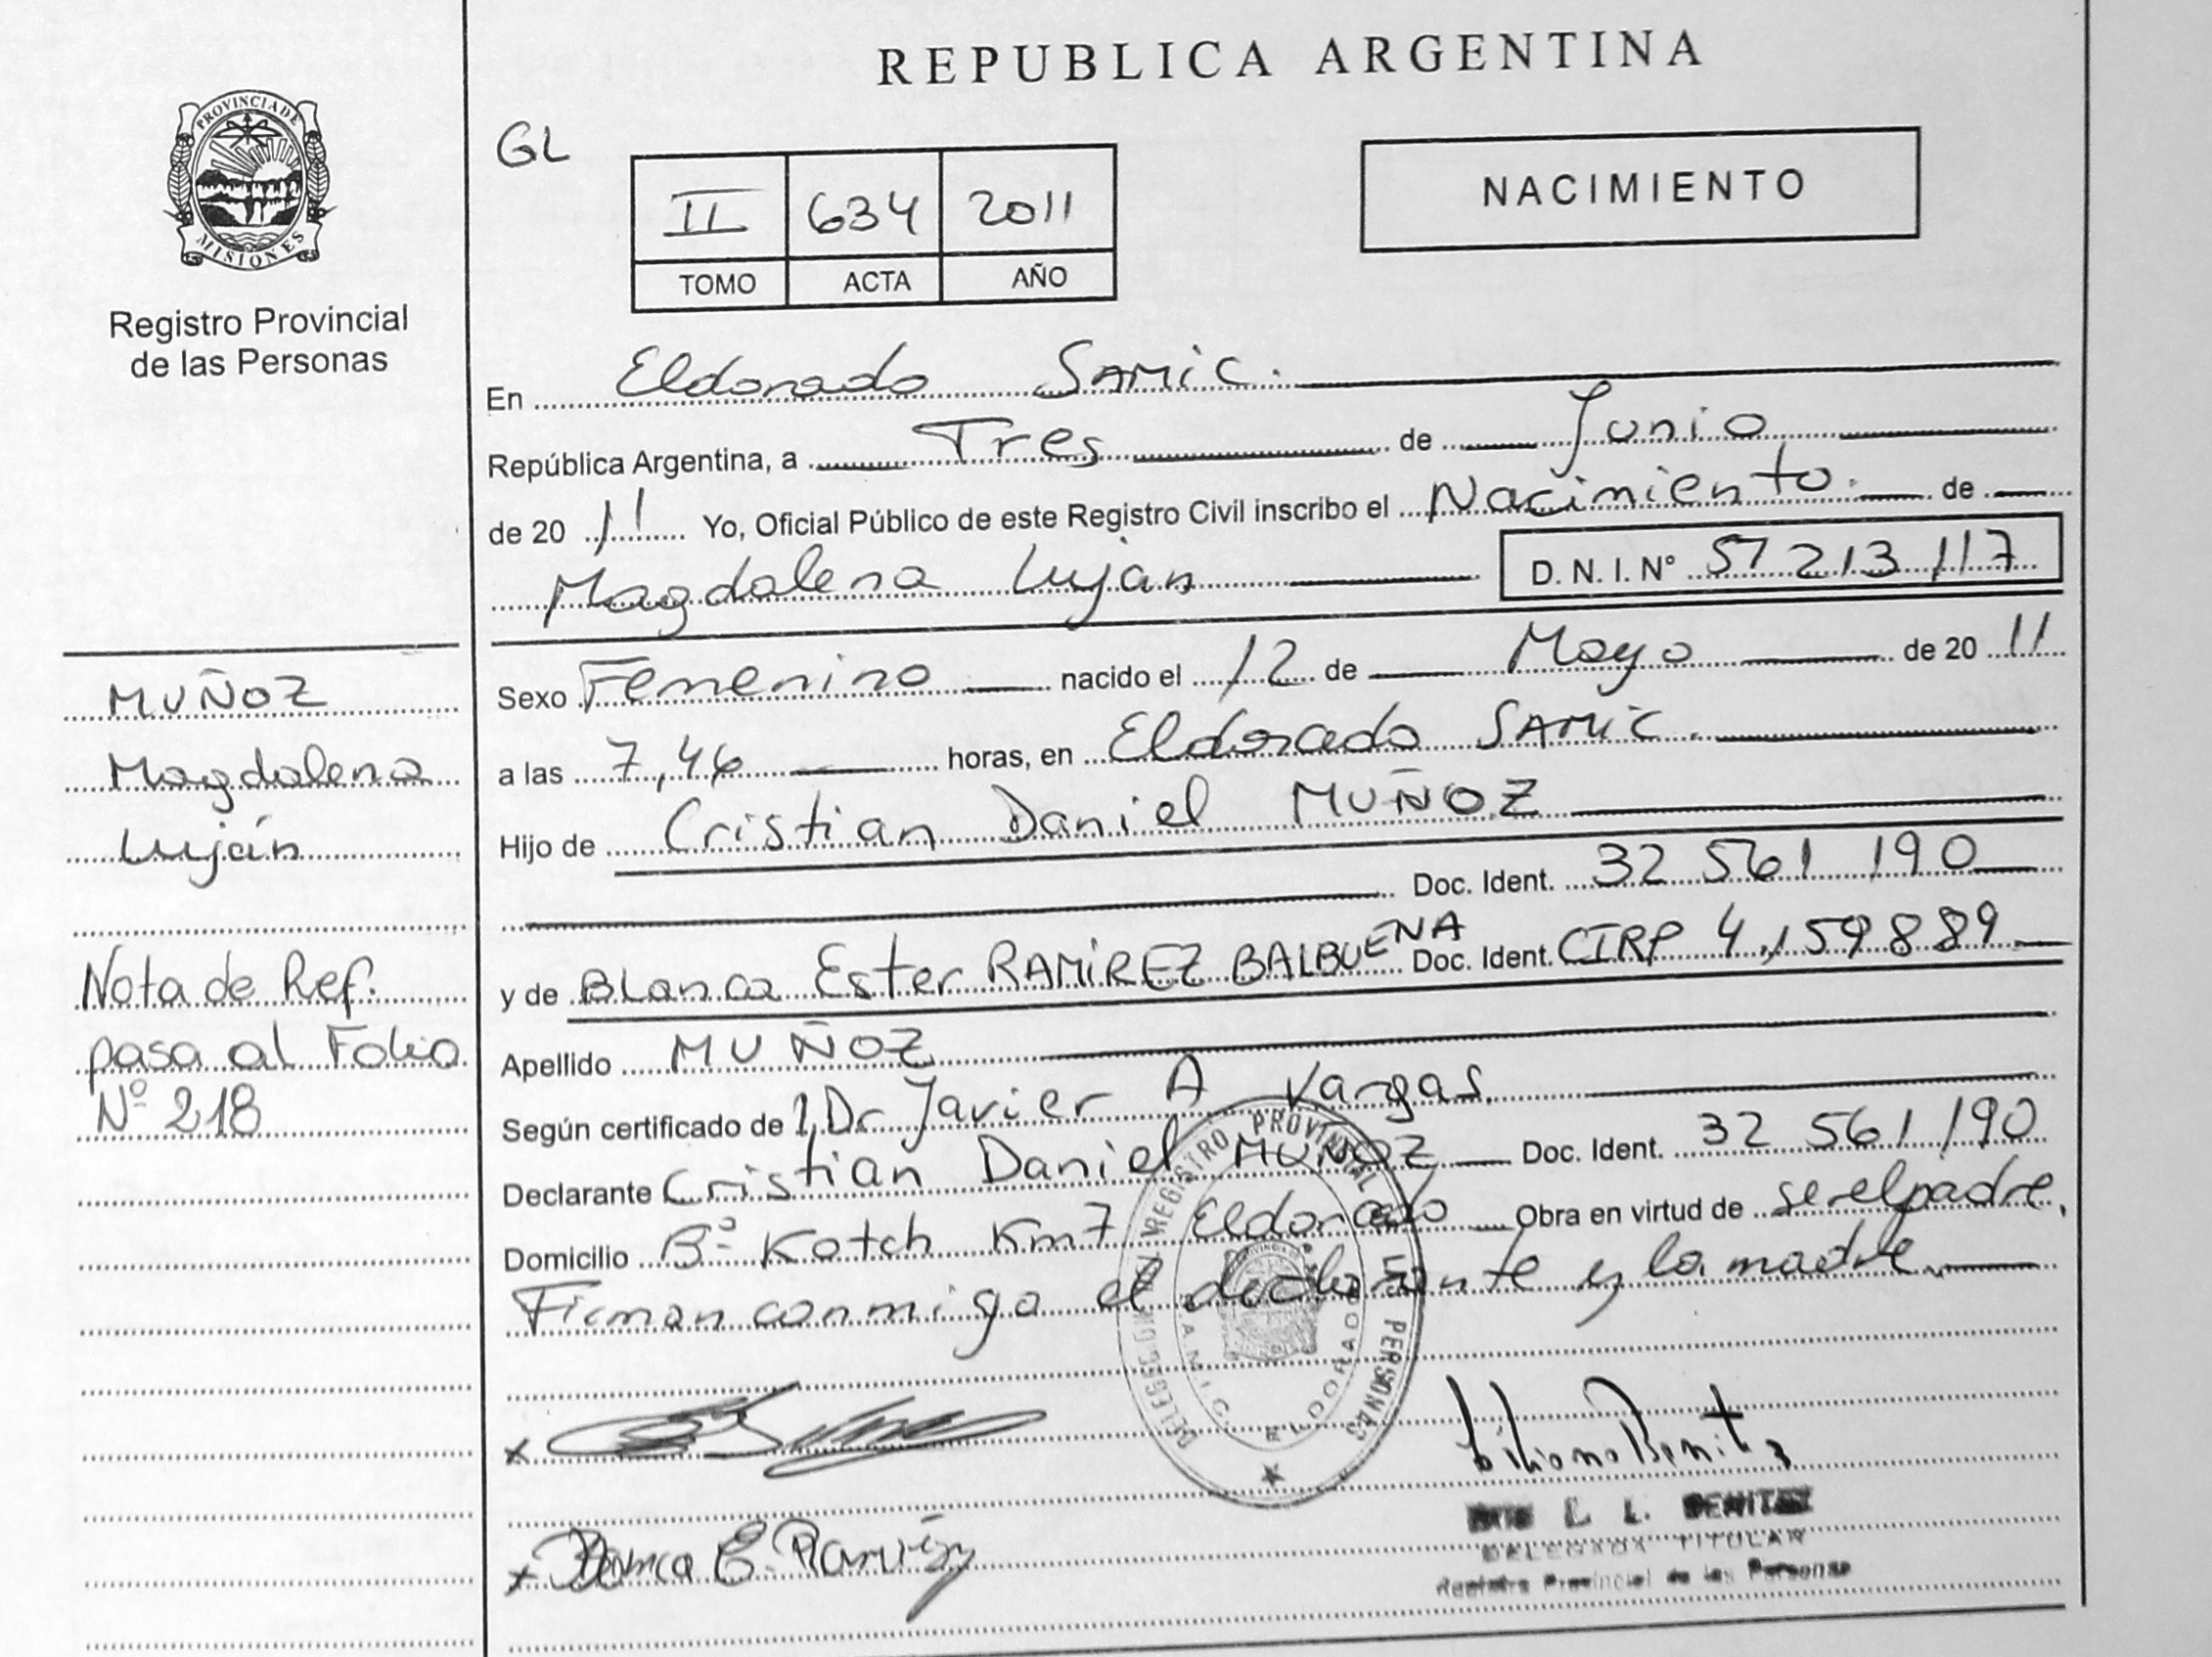 REPUBLICA ARGENTINA
PROVINCIA DE
MISIONES
Registro Provincial
de las Personas
GL
II 634 2011
TOMO ACTA AÑO
NACIMIENTO
En Eldorado SAMIC.
República Argentina, a Tres de Junio
de 20 11 Yo, Oficial Público de este Registro Civil inscribo el Nacimiento. de
Magdalena Luján D. N. I. Nº 51 213 117
Sexo Femenino nacido el 12 de Mayo de 20 11
a las 7,46 horas, en Eldorado SAMIC.
Hijo de Cristian Daniel MUÑOZ
Doc. Ident. 32 561 190
y de Blanca Ester RAMIREZ BALBUENA Doc. Ident. CIRP 4,159889
Apellido MUÑOZ
Según certificado de l Dr Javier A Vargas.
Declarante Cristian Daniel MUÑOZ Doc. Ident. 32 561 190
Domicilio Bº Kotch Km 7 Eldorado Obra en virtud de ser el padre,
Firman conmigo el declarante y la madre.
MUÑOZ
Magdalena
Luján
Nota de Ref.
pasa al Folio
Nº 218
REGISTRO PROVINCIAL DE LAS PERSONAS
PROVINCIA DE
SAMIC ELDORADO
x
x Blanca E. Ramírez
Liliana Benitez
L. L. BENITEZ
TITULAR
Registro Provincial de las Personas